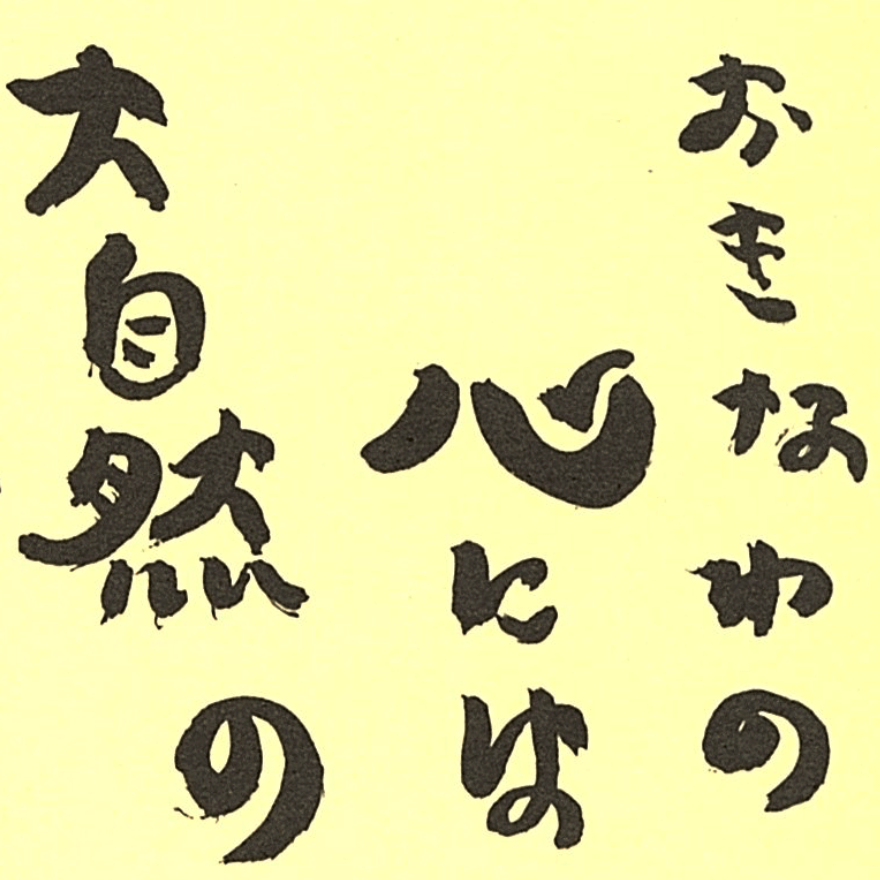 おきなわの
心には
大自然の